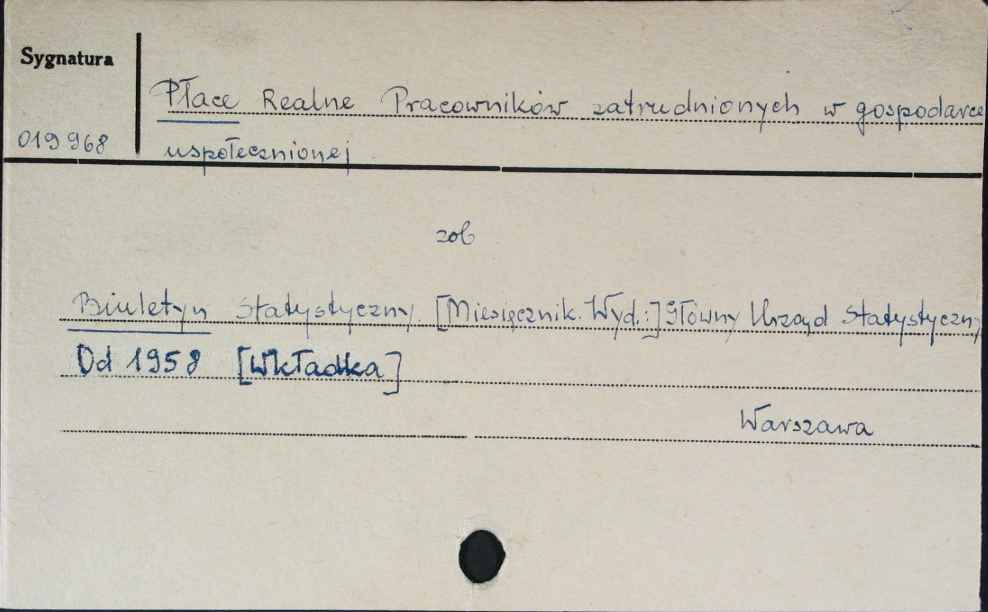 Sygnatura
Płace Realne Pracowników zatrudnionych w gospodarce
019968
uspołecznionej
zob
Biuletyn Statystyczny. [Miesięcznik. Wyd.:] Główny Urząd Statystyczny
Od 1958 [Wkładka]
Warszawa